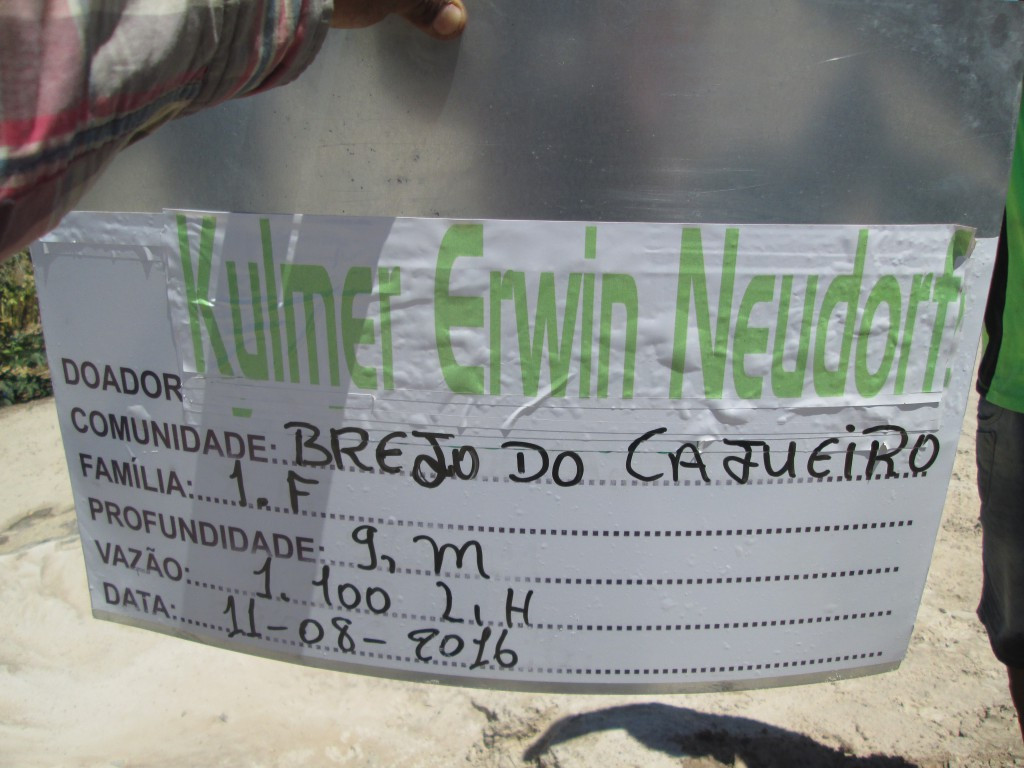 Kulmer Erwin Neudorf
DOADOR
COMUNIDADE: BREJO DO CAJUEIRO
FAMÍLIA: 1. F
PROFUNDIDADE: 9, m
VAZÃO: 1.100 L, H
DATA: 11-08-2016